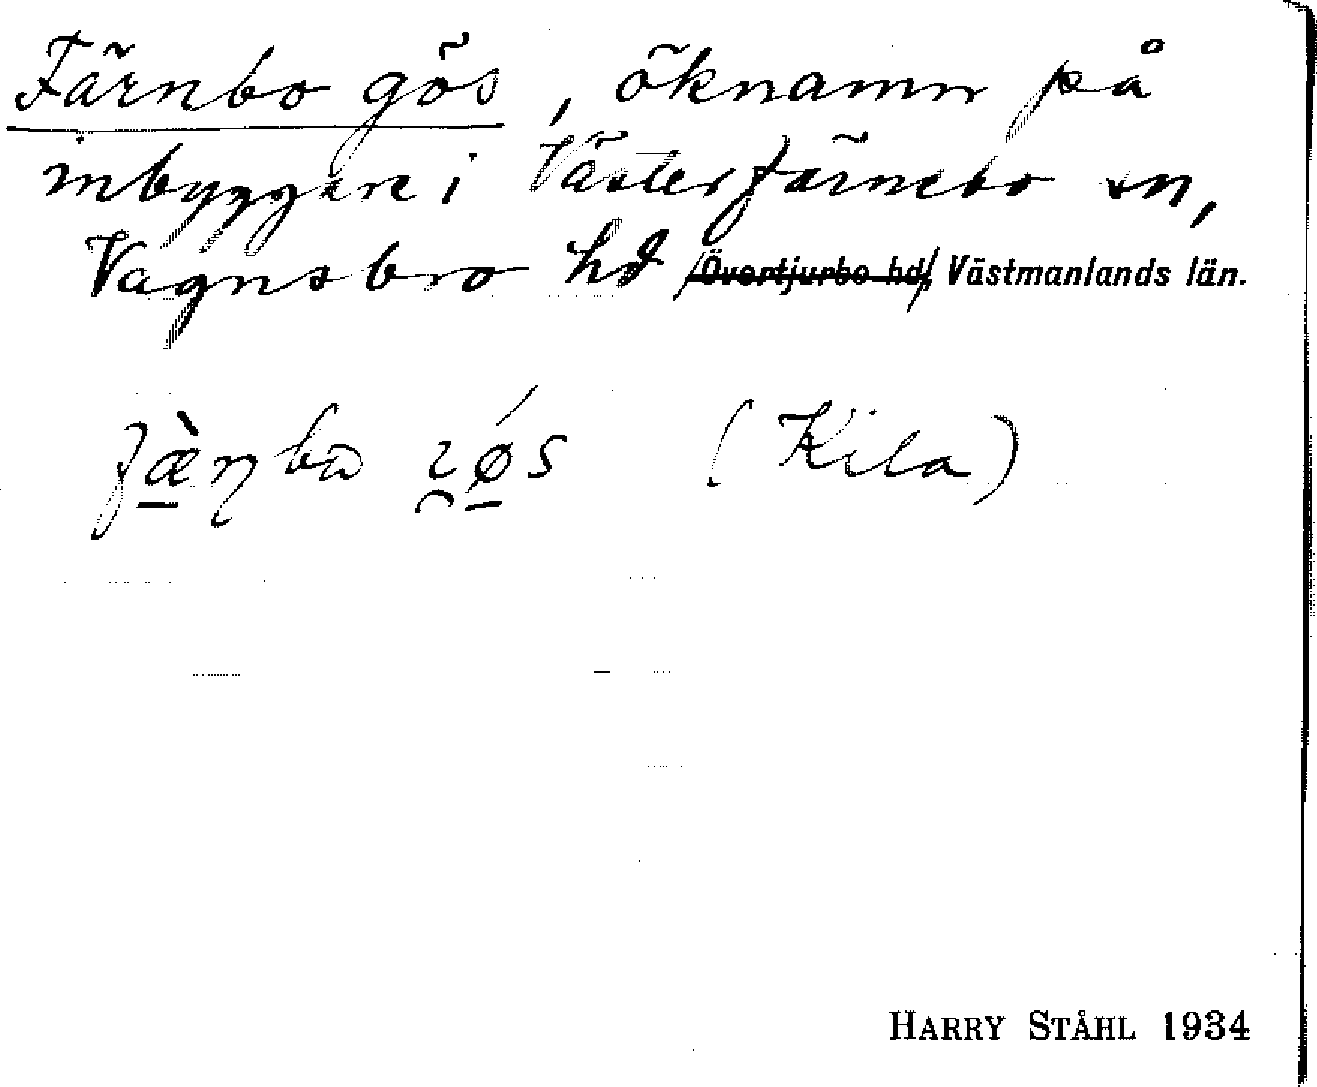 Färnbo gös, öknamn på
inbyggare i Västerfärnebo sn,
Vagnsbro hd /Övertjurbo hd/, Västmanlands län.
(Kila)
HARRY STÅHL 1934